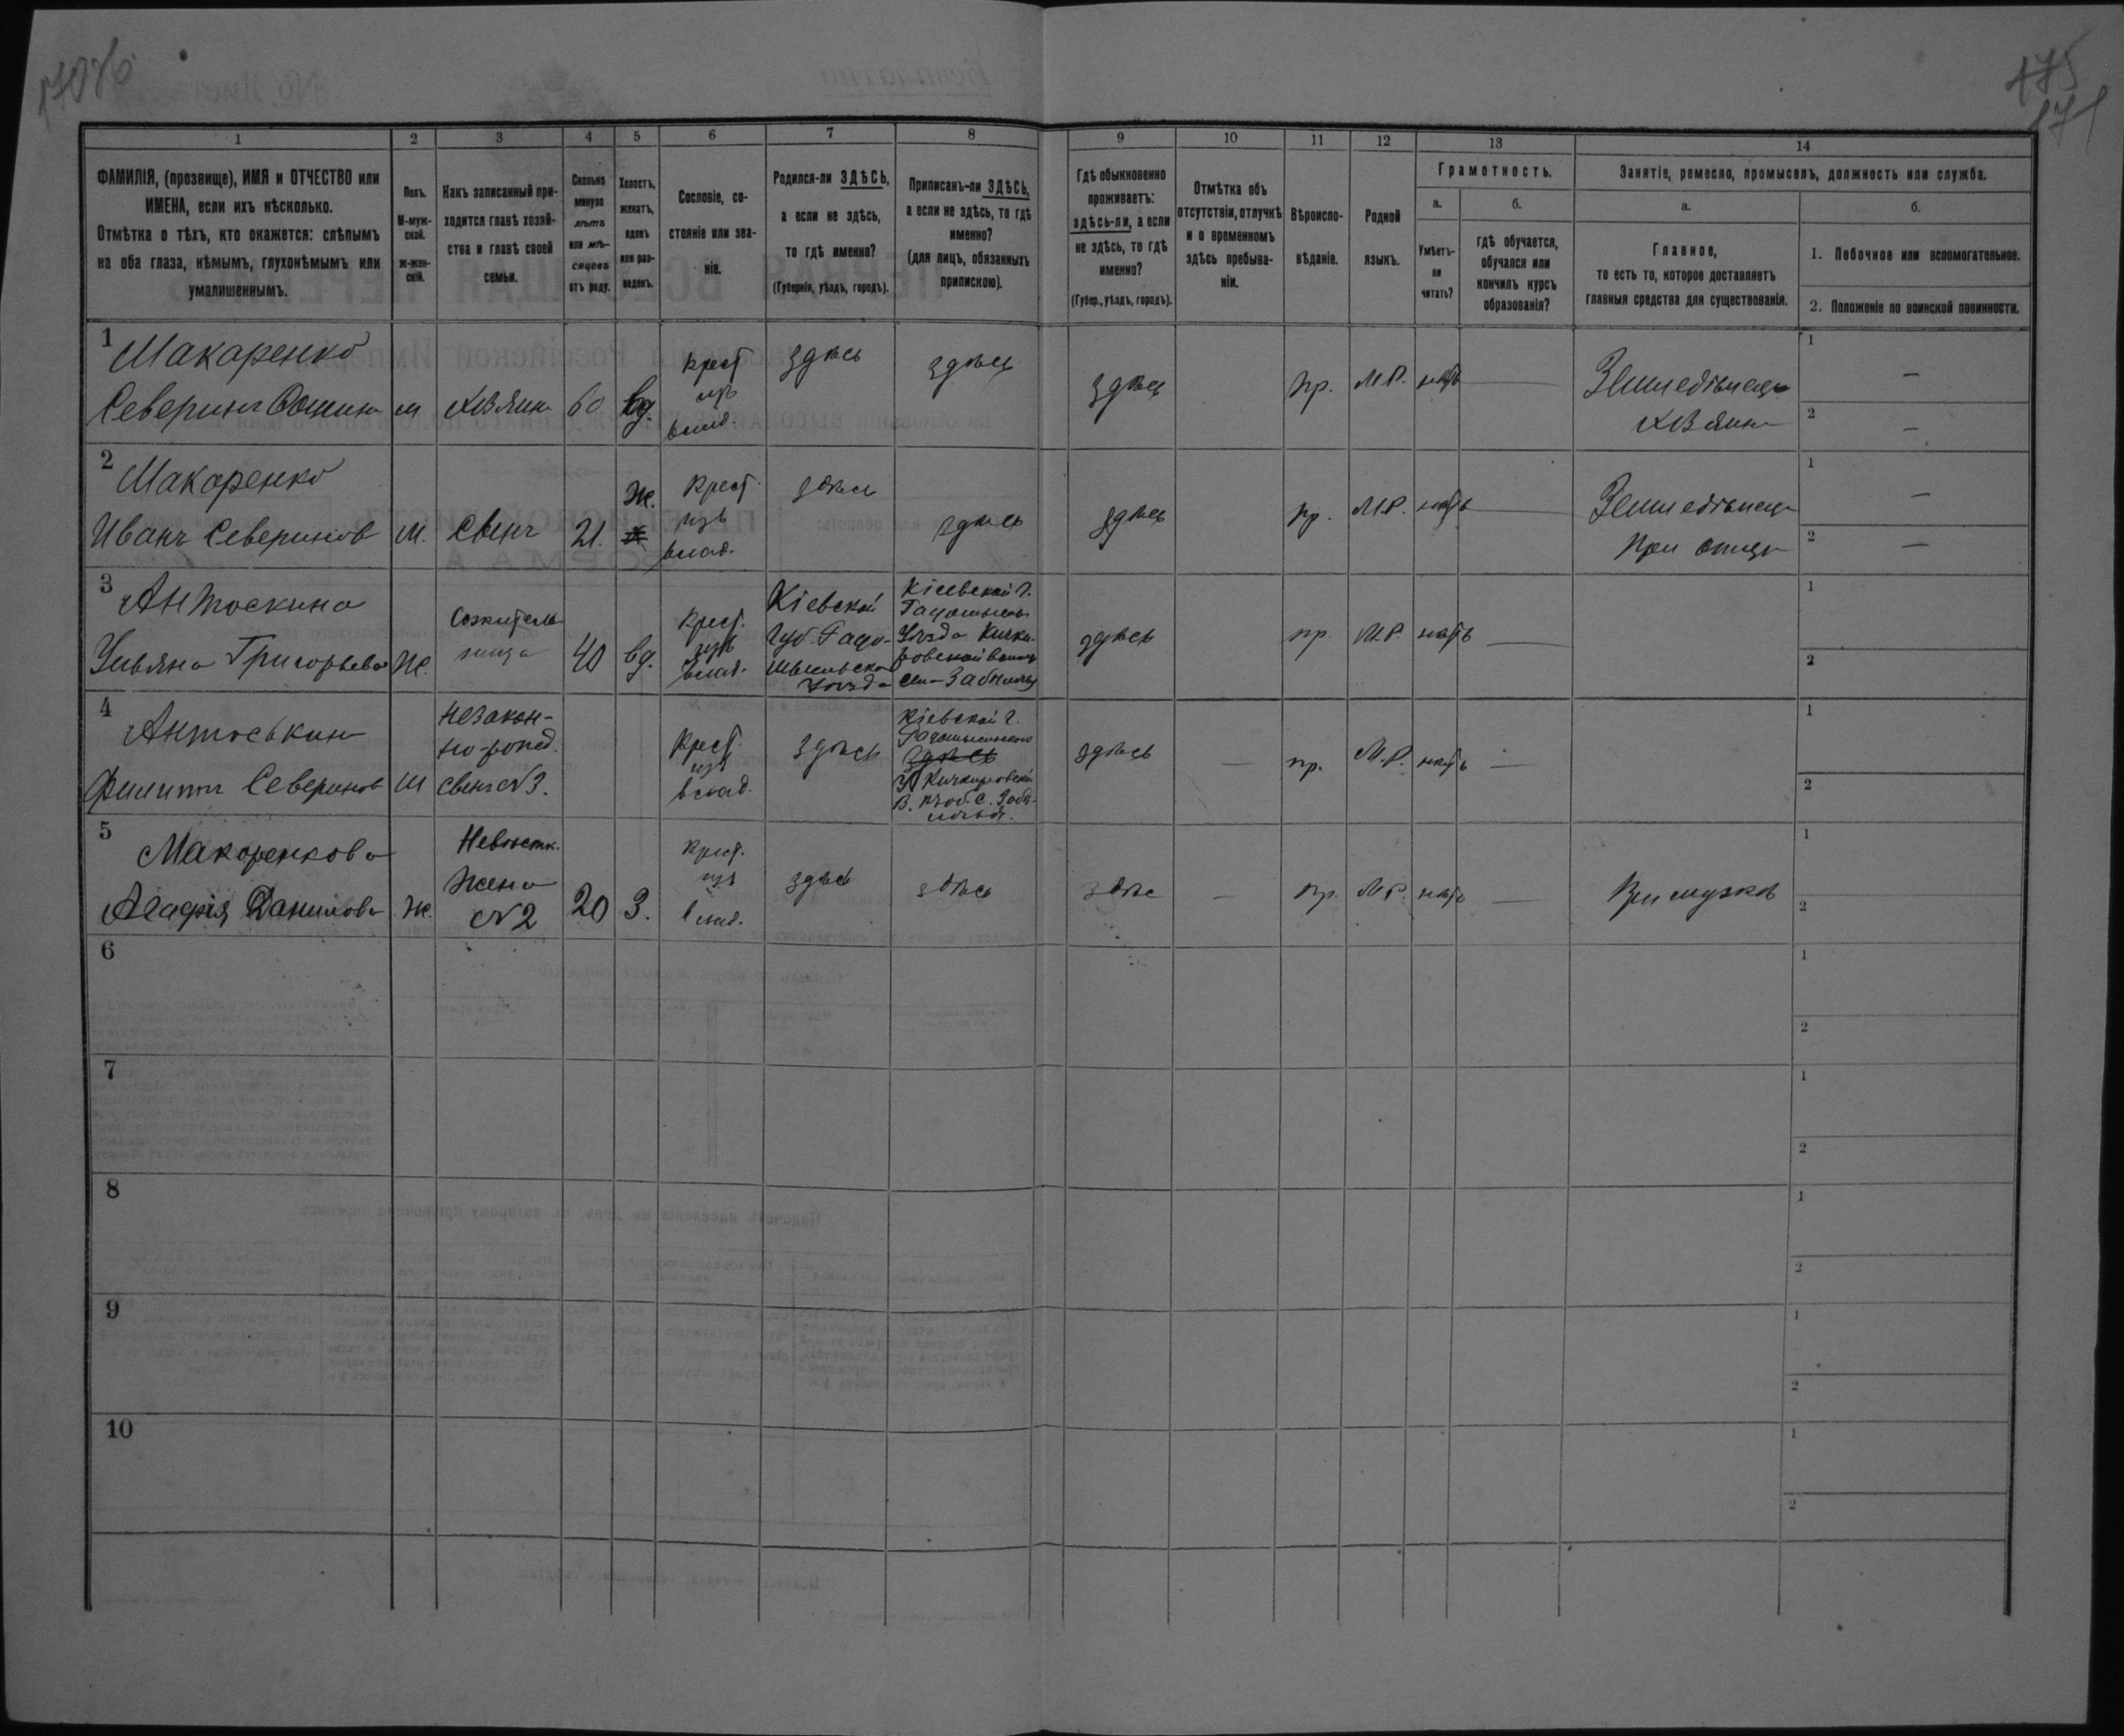 175
171
1 2 3 4 5 6 7 8 9 10 11 12 13 14
ФАМИЛІЯ, (прозвище), ИМЯ и ОТЧЕСТВО или
ИМЕНА, если ихъ нѣсколько.
Отмѣтка о тѣхъ, кто окажется: слѣпымъ
на оба глаза, нѣмымъ, глухонѣмымъ или
умалишеннымъ.
Полъ.
М-муж-
ской.
ж-жен-
скій.
Какъ записанный при-
ходится главѣ хозяй-
ства и главѣ своей
семьи.
Сколько
минуло
лѣтъ
или мѣ-
сяцевъ
отъ роду.
Холостъ,
женатъ,
вдовъ
или раз-
веденъ.
Сословіе, со-
стояніе или зва-
ніе.
Родился-ли ЗДѢСЬ,
а если не здѣсь,
то гдѣ именно?
(Губернія, уѣздъ, городъ).
Приписанъ-ли ЗДѢСЬ,
а если не здѣсь, то гдѣ
именно?
(для лицъ, обязанныхъ
припискою).
Гдѣ обыкновенно
проживаетъ:
здѣсь-ли, а если
не здѣсь, то гдѣ
именно?
(Губер., уѣздъ, городъ).
Отмѣтка объ
отсутствіи, отлучкѣ
и о временномъ
здѣсь пребыва-
ніи.
Вѣроиспо-
вѣданіе.
Родной
языкъ.
Грамотность.
а.
Умѣетъ-
ли
читать?
б.
гдѣ обучается,
обучался или
кончилъ курсъ
образованія?
Занятіе, ремесло, промыселъ, должность или служба.
а.
Главное,
то есть то, которое доставляетъ
главныя средства для существованія.
б.
1. Побочное или вспомогательное.
2. Положеніе по воинской повинности.
1
Макаренко
Северинъ м Хозяинъ 60 вд.
Крест
изъ
влад.
здѣсь
здѣсь
здѣсь
пр. М.Р. нѣтъ —
Земледѣлецъ
Хозяинъ
1 —
2 —
2
Макаренко
Иванъ Северинов м. Сынъ 21.
Ж.
Крест.
изъ
влад.
здѣсь
здѣсь
здѣсь
пр. М.Р. нѣтъ —
Земледѣлецъ
При отцѣ
1 —
2 —
3
Антоскина
Ульяна Григорьева Ж.
Сожитель
ница
40 вд.
Крест.
изъ
влад.
Кіевской
Губ. Радо-
мысльско
Уѣзда
Кіевской Г.
Уѣзда Кички-
ровской
здѣсь
пр. М.Р. нѣтъ —
1
2
4
Антоськин
Филиппъ Северинов м
Незакон-
но-рожд.
сынъ №3.
Крест.
изъ
влад.
здѣсь
Кіевской Г.
здѣсь
У. Кичкировской
здѣсь
— пр. М.Р. нѣтъ —
1
2
5
Макаренкова
Агафія Данилова Ж.
Невѣстк.
Жена
№2
20 З.
Крест.
изъ
влад.
здѣсь
здѣсь
здѣс
— пр. М.Р. нѣтъ —
При мужѣ
1
2
6
1
2
7
1
2
8
1
2
9
1
2
10
1
2